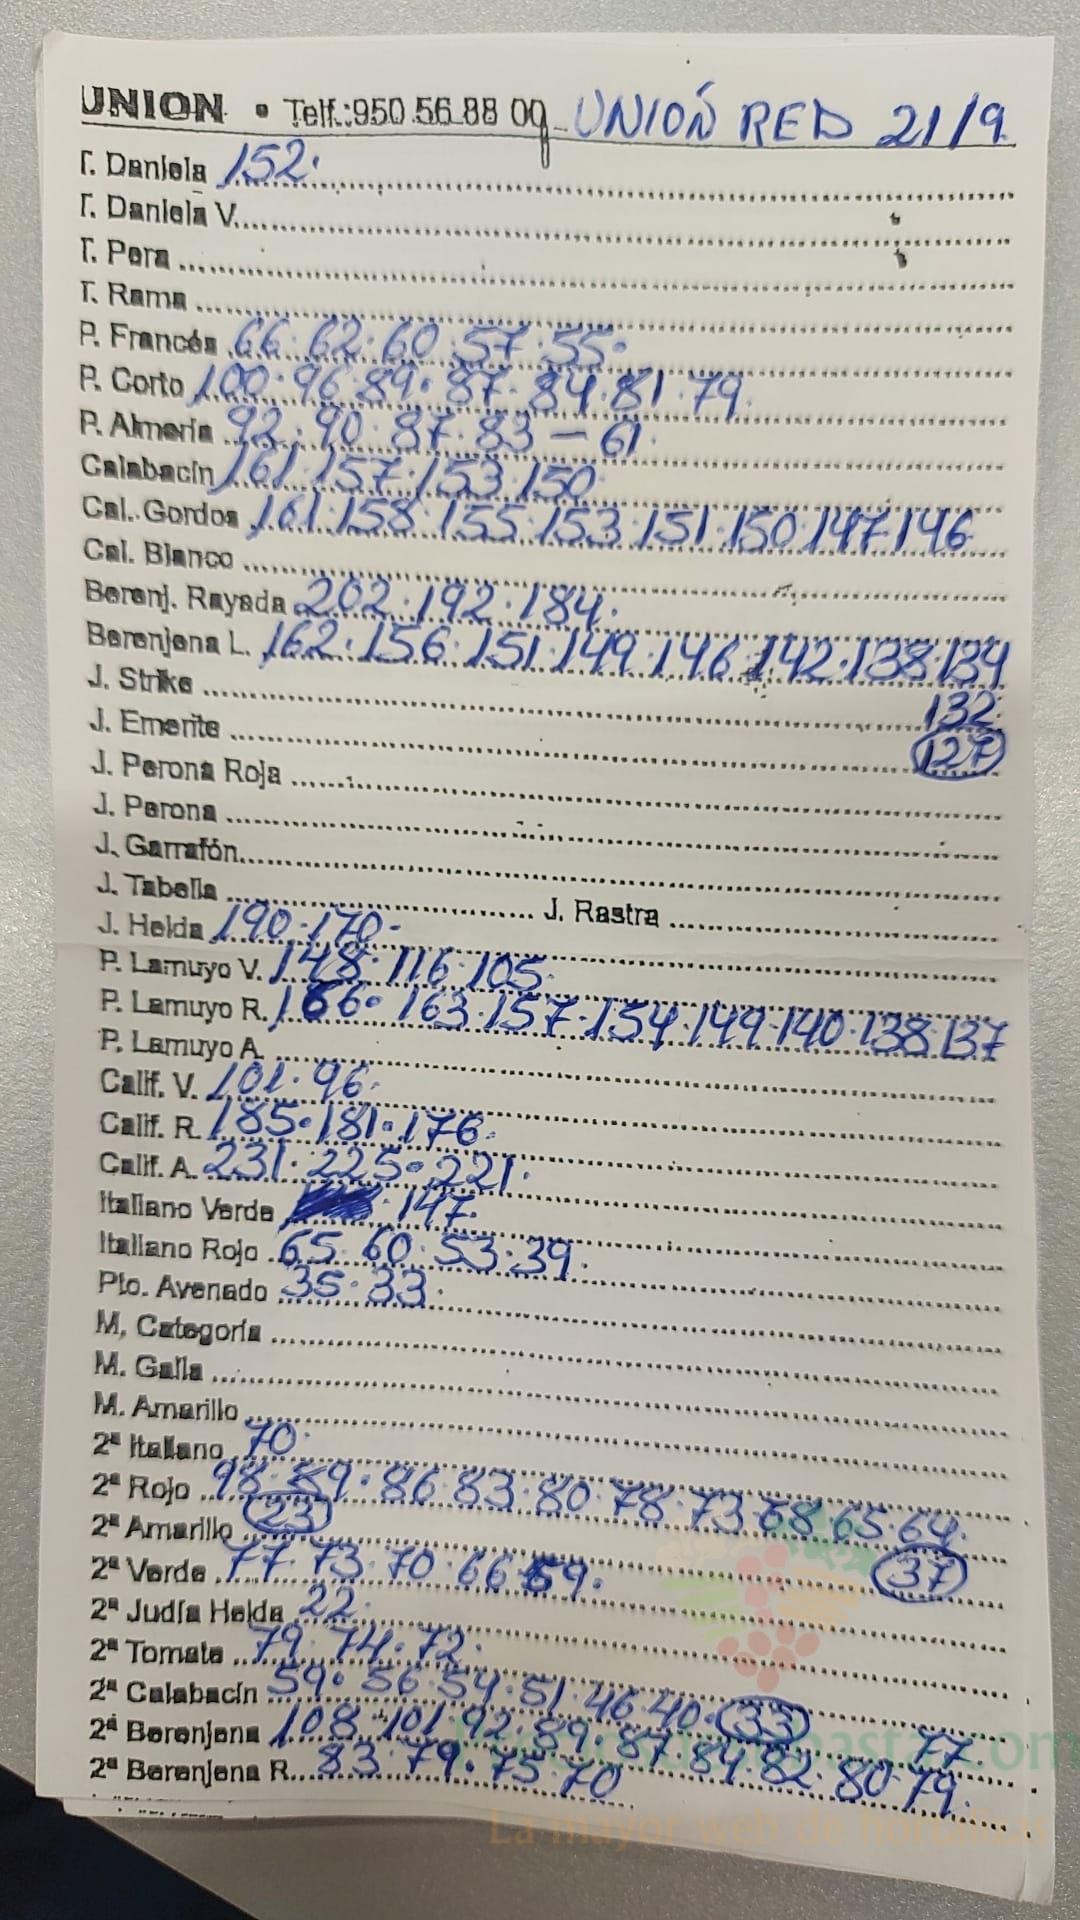 UNION • Telf.:950.56.88 09 UNIÓN RED 21/9
T. Daniela 152.
T. Daniela V.
T. Pera
T. Rama
P. Francés 66.62.60.57.55.
P. Corto 100.96.89.87.84.81.79.
P. Almería 92.90.87.83 - 61.
Calabacín 161.157.153.150
Cal. Gordos 161.158.155.153.151.150.147.146
Cal. Blanco
Berenj. Rayada 202.192.184.
Berenjena L. 162.156.151.149.146.142.138.134
J. Strike 132
J. Emerite 127
J. Perona Roja
J. Perona
J. Garrafón
J. Tabella J. Rastra
J. Helda 190.170.
P. Lamuyo V. 148.116.105.
P. Lamuyo R. 166.163.157.154.149.140.138.137
P. Lamuyo A.
Calif. V. 101.96.
Calif. R. 185.181.176.
Calif. A. 231.225.221.
Italiano Verde 147.
Italiano Rojo 65.60.53.39.
Pto. Avenado 35.33.
M. Categoría
M. Galia
M. Amarillo
2ª Italiano 70.
2ª Rojo 98.89.86.83.80.78.73.68.65.64.
2ª Amarillo 23 37
2ª Verde 77.73.70.66.59.
2ª Judía Helda 22.
2ª Tomate 79.74.72.
2ª Calabacín 59.56.54.51.46.40.33
2ª Berenjena 108.101.92.89.87.84.82.80.79. 77
2ª Berenjena R. 83.79.75.70
La mayor web de hortalizas